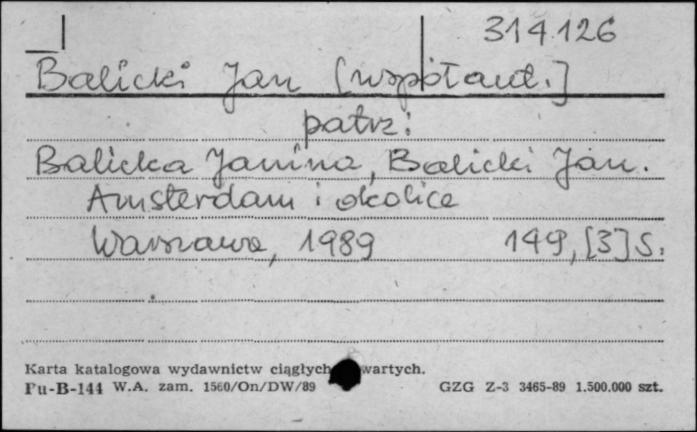 314.126
Balicki Jan [współaut.]
patrz:
Balicka Janina, Balicki Jan.
Amsterdam i okolice
Warszawa, 1989 149, [3] s.
Karta katalogowa wydawnictw ciągłych wartych.
Pu-B-144 W.A. zam. 1560/On/DW/89 GZG Z-3 3465-89 1.500.000 szt.